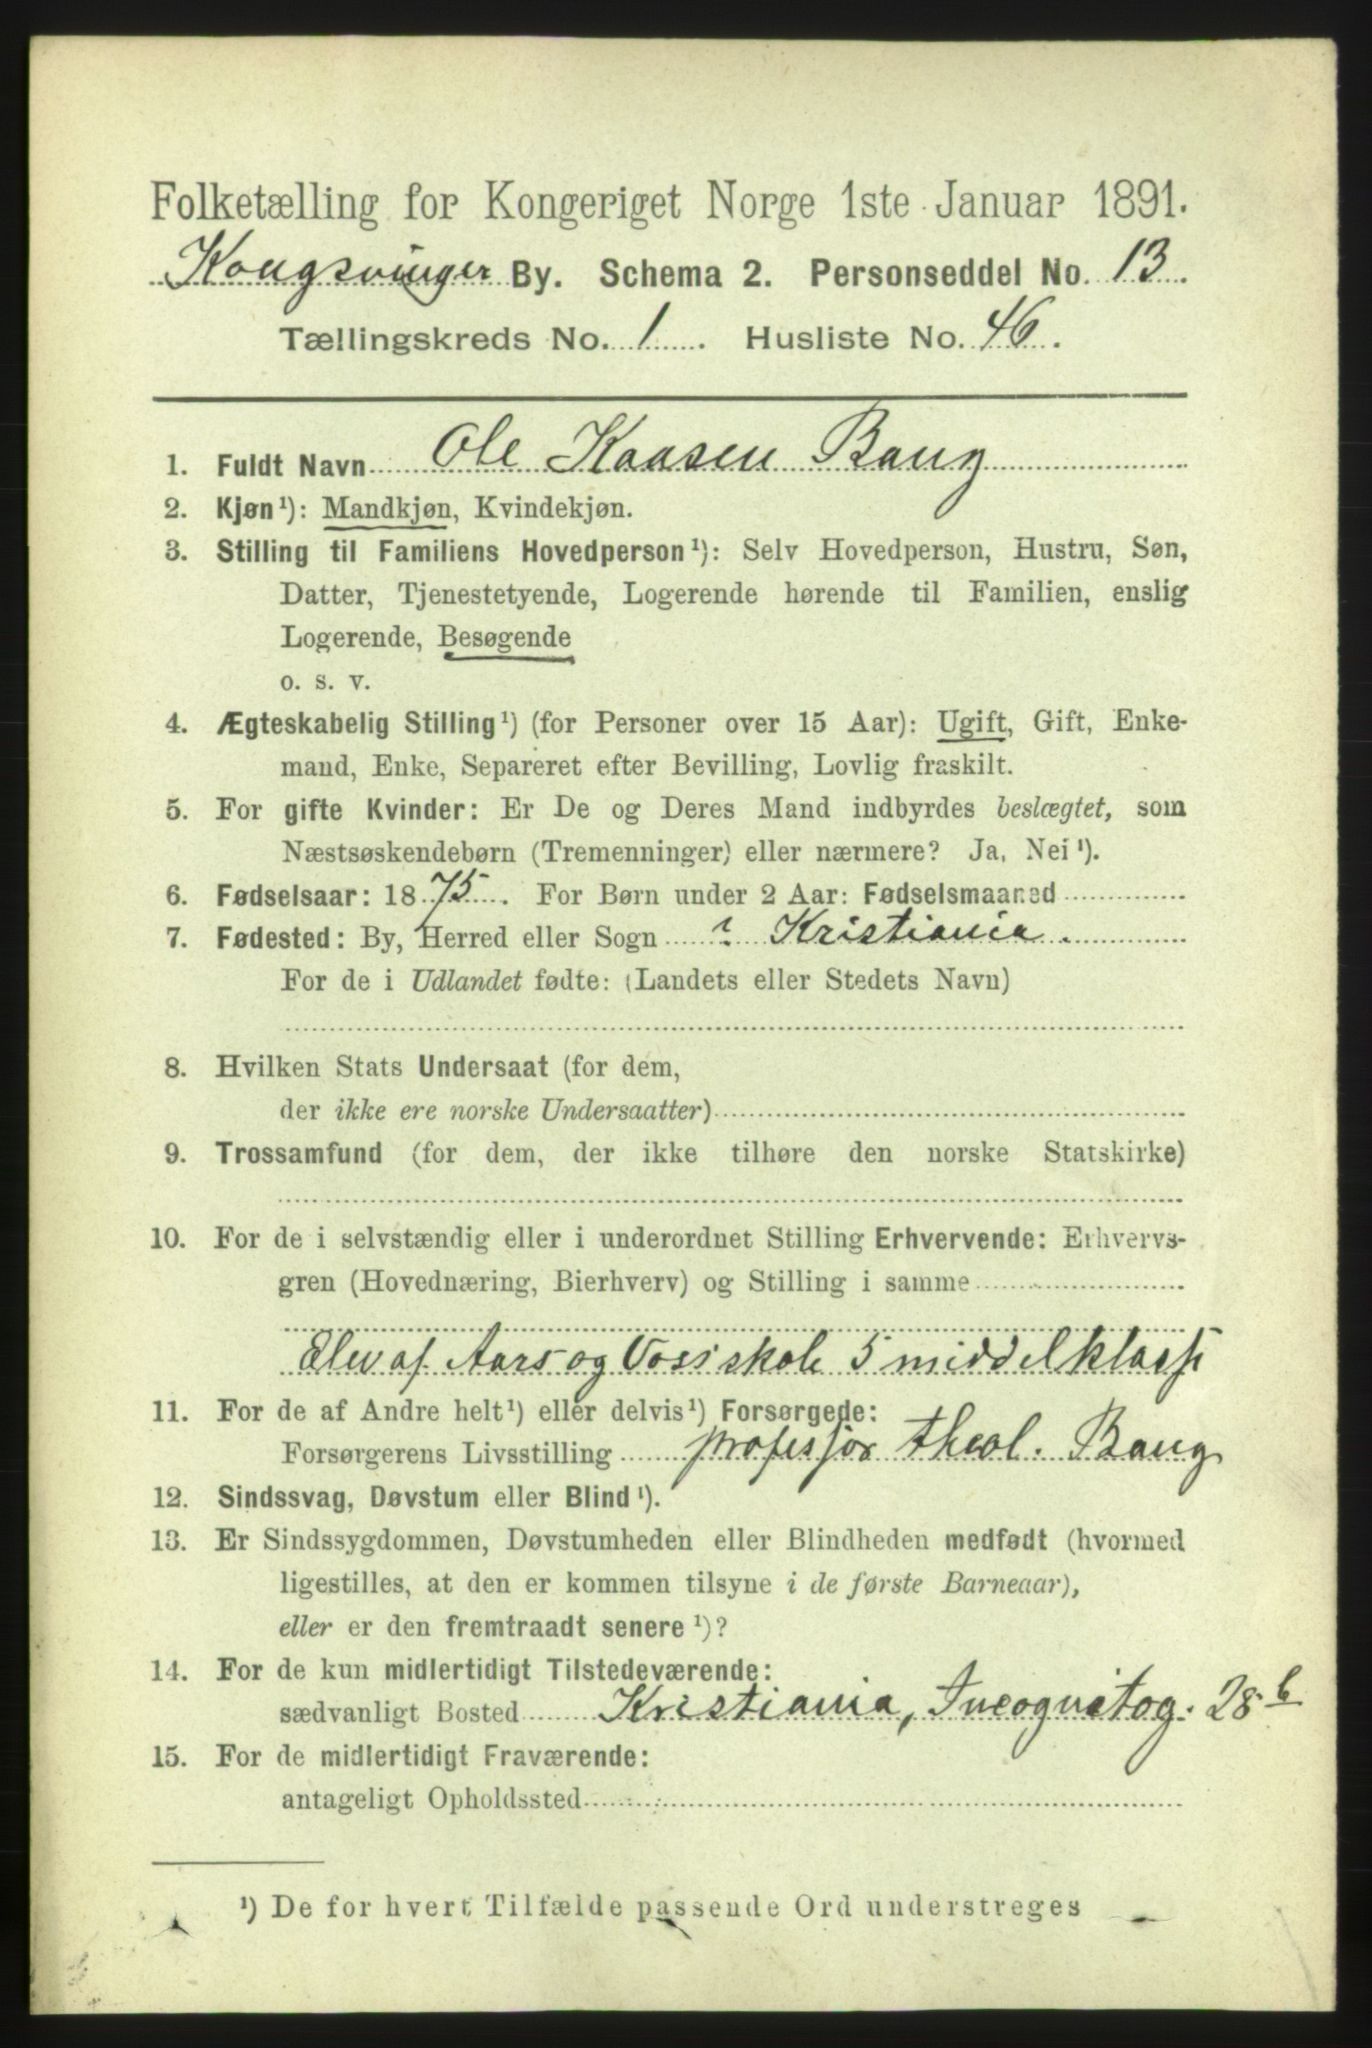 Folketælling for Kongeriget Norge 1ste Januar 1891.
Kongsvinger By. Schema 2. Personseddel No. 13.
Tællingskreds No. 1. Husliste No. 46.
1. Fuldt Navn Ole Kaasen Bang
2. Kjøn¹): Mandkjøn, Kvindekjøn.
3. Stilling til Familiens Hovedperson¹): Selv Hovedperson, Hustru, Søn,
Datter, Tjenestetyende, Logerende hørende til Familien, enslig
Logerende, Besøgende
o. s. v.
4. Ægteskabelig Stilling¹) (for Personer over 15 Aar): Ugift, Gift, Enke-
mand, Enke, Separeret efter Bevilling, Lovlig fraskilt.
5. For gifte Kvinder: Er De og Deres Mand indbyrdes beslægtet, som
Næstsøskendebørn (Tremenninger) eller nærmere? Ja, Nei¹).
6. Fødselsaar: 1875. For Børn under 2 Aar: Fødselsmaaned
7. Fødested: By, Herred eller Sogn ? Kristiania.
For de i Udlandet fødte: (Landets eller Stedets Navn)
8. Hvilken Stats Undersaat (for dem,
der ikke ere norske Undersaatter)
9. Trossamfund (for dem, der ikke tilhøre den norske Statskirke)
10. For de i selvstændig eller i underordnet Stilling Erhvervende: Erhvervs-
gren (Hovednæring, Bierhverv) og Stilling i samme
Elev af Aars og Voss' skole 5 middelklasse
11. For de af Andre helt¹) eller delvis¹) Forsørgede:
Forsørgerens Livsstilling professor theol. Bang
12. Sindssvag, Døvstum eller Blind¹).
13. Er Sindssygdommen, Døvstumheden eller Blindheden medfødt (hvormed
ligestilles, at den er kommen tilsyne i de første Barneaar),
eller er den fremtraadt senere¹)?
14. For de kun midlertidigt Tilstedeværende:
sædvanligt Bosted Kristiania, Incognitog. 28 b
15. For de midlertidigt Fraværende:
antageligt Opholdssted
¹) De for hvert Tilfælde passende Ord understreges